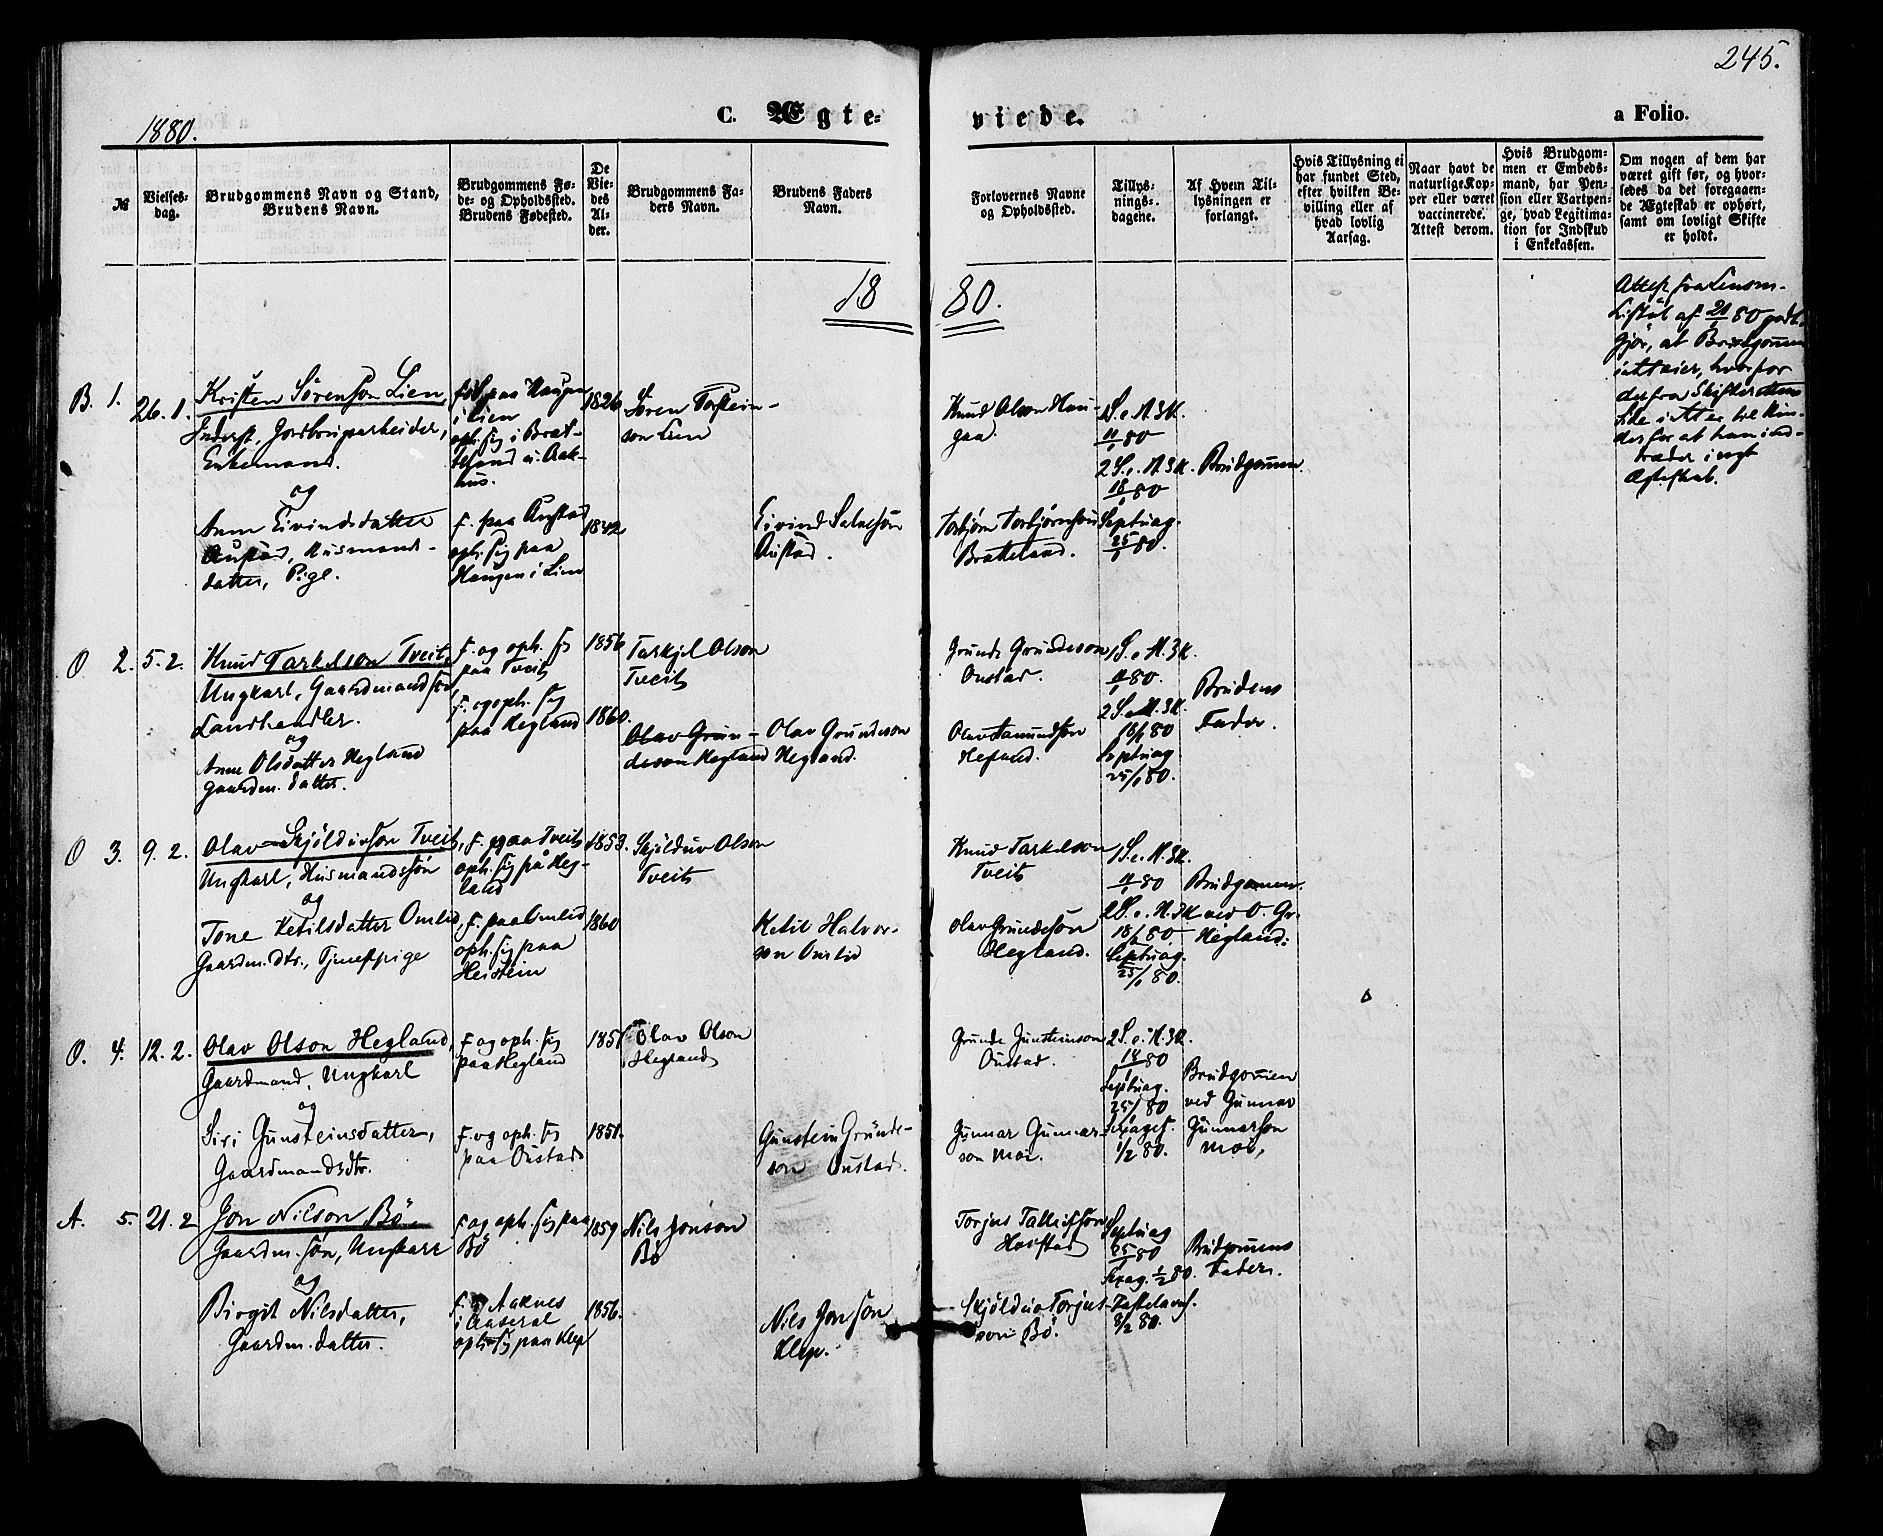 245.
1880.
C. Ægte-
viede.
a Folio.
№
Vielses-
dag.
Brudgommens Navn og Stand,
Brudens Navn.
Brudgommens Fø-
de- og Opholdssted.
Brudens Fødested.
De
Vie-
des
Al-
der.
Brudgommens Fa-
ders Navn.
Brudens Faders
Navn.
Forlovernes Navne
og Opholdssted.
Tillys-
nings-
dagene.
Af Hvem Til-
lysningen er
forlangt.
Hvis Tillysning ei
har fundet Sted,
efter hvilken Be-
villing eller af
hvad lovlig
Aarsag.
Naar havt de
naturlige Kop-
per eller været
vaccinerede.
Attest derom.
Hvis Brudgom-
men er Embeds-
mand, har Pen-
sion eller Vartpen-
ge, hvad Legitima-
tion for Indskud
i Enkekassen.
Om nogen af dem har
været gift før, og hvor-
ledes da det foregaaen-
de Ægteskab er ophørt,
samt om lovligt Skifte
er holdt.
18
80.
Attest fra Lensm.
af 21/1 80 godt-
gjør, at Brudgommen
hvorfor
der fra Skifteretten
for at han ind-
træder i nyt
Ægteskab.
B. 1.
26. 1.
Kristen Sørenson Lien
Inderst, Jordbrugsarbeider,
Enkemand.
og
Anne Eivindsdatter
Austad, Husmands-
datter, Pige.
født paa Haugen
i Lien
oph. sig i Brat-
teland i Aak-
hus.
f. paa Austad
oph. sig paa
Haugen i Lien
1826
1842
Søren Torstein-
son Lien
Eivind Salveson
Austad.
Knud Olson Hau-
gaa.
Torbjørn Torbjørnson
Bratteland.
1 S. e. H. 3 K.
11/1 80
2 S. e. H. 3 K.
18/1 80
Septuag.
25/1 80.
Brudgommen.
O 2. 5. 2.
Knud Tarkelson Tveit,
Ungkarl, Gaardmandssøn
Landhandler.
og
Anne Olsdatter Hegland
Gaardm. datter.
F. og oph. sig
paa Tveit
F. og oph. sig
paa Hegland
1856
1860.
Tarkjel Olson
Tveit
Olav Grun-
deson Hegland
Olav Grundeson
Hegland.
Grunde Grundeson
Oustad.
Olav Aamundson
Hegland.
1 S. e. H. 3 K.
11/1 80.
2 S. e. H. 3 K.
18/1 80
Septuag
25/1 80.
Brudens
Fader.
O 3. 9. 2.
Olav Skjöldulfson Tveit,
Ungkarl, Husmandssøn
og
Tone Ketilsdatter Omlid,
Gaardm. dtr., Tjenestpige
F. paa Tveit
oph. sig på Heg-
land
F. paa Omlid
oph. sig paa
Heistein
1853.
1860
Skjölduv Olson
Tveit
Ketil Halvor-
son Omlid
Knud Tarkelson
Tveit
Olav Grundeson
Hegland.
1 S. e. H. 3 K.
11/1 80
2 S. e. H. 3 K
18/1 80.
Septuag.
25/1 80.
Brudgommen
ved O. Gr.
Hegland.
O. 4. 12. 2.
Olav Olson Hegland,
Gaardmand, Ungkarl
og
Siri Gunsteinsdatter,
Gaardmandsdtr.
F. og oph. sig
paa Hegland
F. og oph. sig
paa Oustad
1851
1851.
Olav Olson
Hegland
Gunstein Grunde-
son Oustad.
Grunde Gunsteinson
Oustad.
Gunnar Gunnar-
son Moi.
2 S. e. H. 3 K.
18/1 80
Septuag.
25/1 80
Sexages.
1/2 80.
Brudgommen
ved Gunnar
Gunnarson
Moi,
A. 5. 21. 2
Jon Nilson Bö.
Gaardm. søn, Ungkarl
og
Birgit Nilsdatter,
Gaardm. datter.
F. og oph. sig paa
Bö
F. Aaknes
i Aaseral
oph. sig paa Klep
1859
1856.
Nils Jonson
Bö
Nils Jonson
Klep.
Torjus Tallefson
Harstad
Skjöldu Torjus-
son Bö.
Septuag
25/1 80
Sexag. 1/2 80.
Fastelavns.
8/2 80.
Brudgommens
Fader.